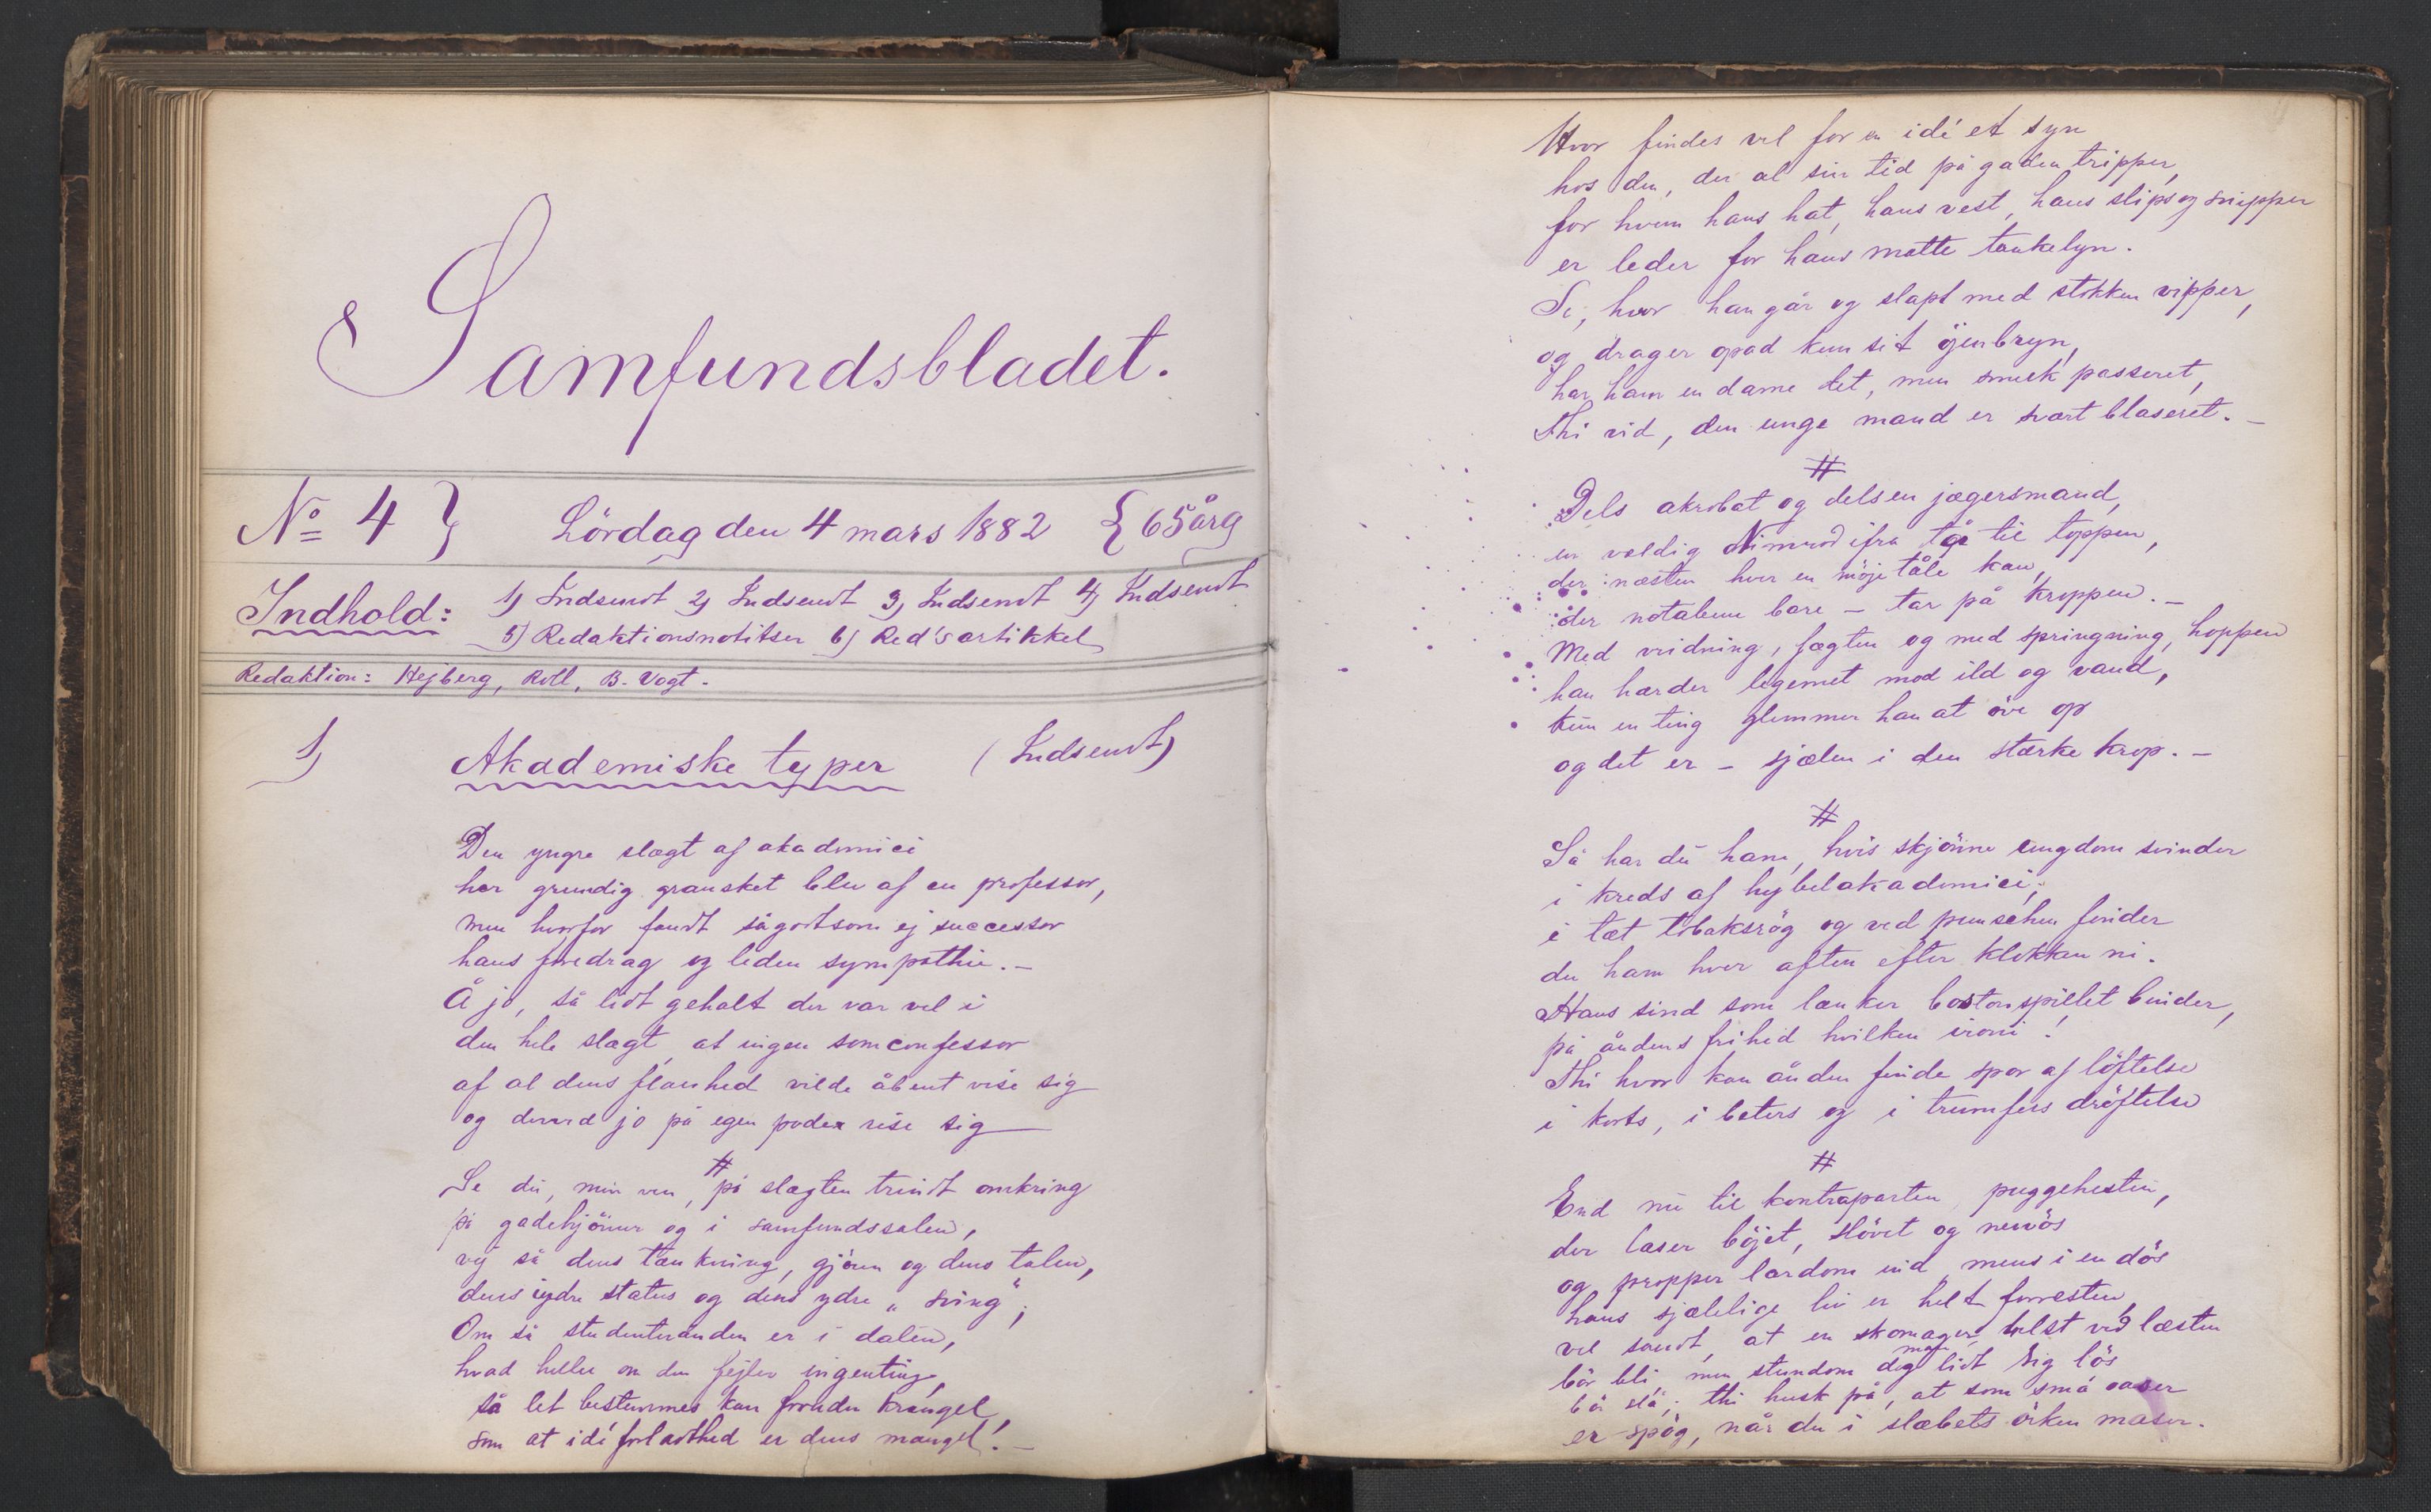 Samfundsbladet.
No 4 } Lördag den 4 mars 1882 { 65 årg
Indhold: 1) Indsendt 2) Indsendt 3) Indsendt 4) Indsendt
5) Redaktionsnotitser 6) Red's artikkel
Redaktion: Hejberg, Roll, B. Vogt.
1) Akademiske typer (Indsendt)
Den yngre slægt af akademici
her grundig gransket blev af en professor,
men hvorfor fandt sågodtsom ej successor
hans foredrag og liden sympathie. –
Å jo, så lidt gehalt der var vel i
den hele slægt, at ingen som confessor
af al dens flauhed vilde åbent vise sig
og derved jo på egen podex rise sig
#
Se du, min ven, på slægten trindt omkring
på gadehjörner og i samfundssalen,
vej så dens tænkning, gjören og dens talen,
dens indre status og dens ydre „sving";
Om så studenterånden er i dalen,
hvad heller om den fejler ingenting,
så let bestemmes kan foruden krangel,
som at idéforladthed er dens mangel! –
Hvor findes vel for en idé et syn
hos den, der al sin tid på gaden tripper,
for hvem hans hat, hans vest, hans slips og snipper
er leder for hans matte tankelyn.
Se, hvor han går og slapt med stokken vipper,
og drager opad kun sit öjenbryn,
har ham en dame tet, men smuk passeret,
Thi vid, den unge mand er svært blaseret. –
#
Dels akrobat og dels en jægersmand,
en vældig Nimrod ifra tå til toppen,
der næsten hver en möje tåle kan,
der notabene bare – tar på kroppen. –
Med vridning, fægten og med springning, hoppen
han hærder legemet mod ild og vand,
kun en ting glemmer han at öve op
og det er – sjælen i den stærke krop. –
#
Så har du ham, hvis skjönne ungdom svinder
i kreds af hybelakademici;
i tæt tobaksrög og ved punschen finder
du ham hver aften efter klokken ni.
Hans sind som lænker bostonspillet binder,
på åndens frihed hvilken ironi!
Thi hvor kan ånden finde spor af löftelse
i korts, i beters og i trumfers dröftelse
#
End nu til kontraparten, puggehesten,
der læser böjet, slövet og nervös
og propper lærdom ind, mens i en dös
hans sjælelige liv er helt forresten
vel sandt, at en skomager helst ved læsten
bör bli, men stundom dog man lidt sig lös
bör slå; thi husk på, at som små oaser
er spög, når du i slæbets örken maser.